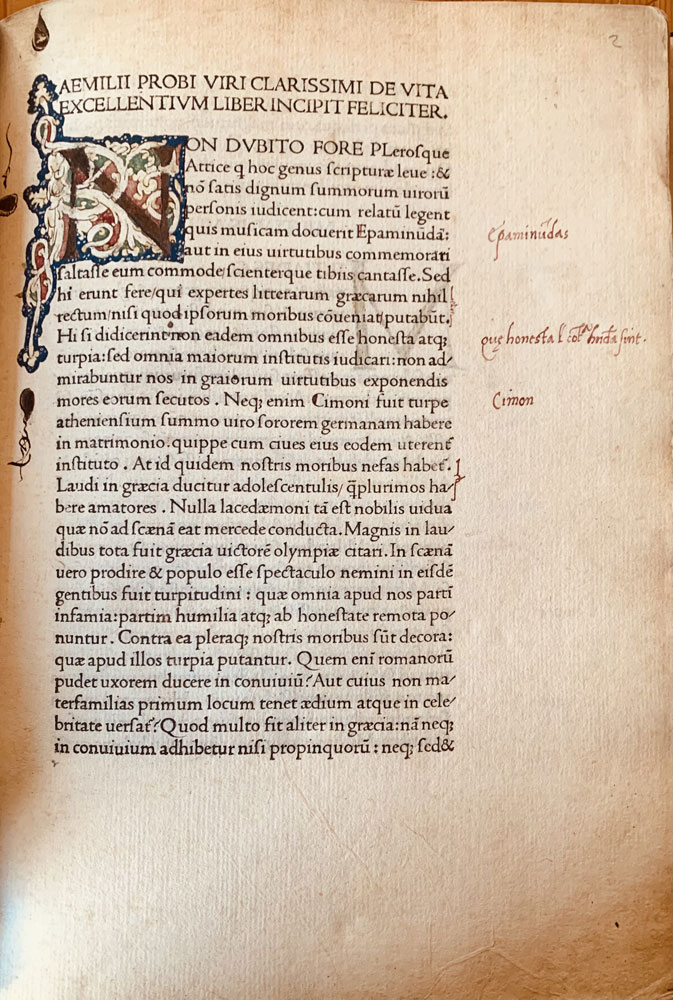 2
AEMILII PROBI VIRI CLARISSIMI DE VITA
EXCELLENTIVM LIBER INCIPIT FELICITER.
NON DVBITO FORE PLeroſque
Attice q hoc genus ſcripturæ leue :&
nō ſatis dignum ſummorum uirorū
perſonis iudicent:cum relatū legent
quis muſicam docuerit Epaminūdā:
aut in eius uirtutibus commemorari
ſaltaſſe eum commode/ſcienterque tibiis cantaſſe. Sed
hi erunt fere/qui expertes litterarum græcarum nihil
rectum/niſi quod ipſorum moribus cōueniat/putabūt.
Hi ſi didicerint non eadem omnibus eſſe honeſta atq;
turpia:ſed omnia maiorum inſtitutis iudicari:non ad/
mirabuntur nos in graiorum uirtutibus exponendis
mores eorum ſecutos . Neq; enim Cimoni fuit turpe
athenienſium ſummo uiro ſororem germanam habere
in matrimonio.quippe cum ciues eius eodem uterent̄
inſtituto . At id quidem noſtris moribus nefas habet̄.
Laudi in græcia ducitur adoleſcentulis/ q̄plurimos ha/
bere amatores . Nulla lacedæmoni tā eſt nobilis uidua
quæ nō ad ſcænā eat mercede conducta. Magnis in lau/
dibus tota fuit græcia uictorē olympiæ citari. In ſcænā
uero prodire & populo eſſe ſpectaculo nemini in eiſdē
gentibus fuit turpitudini : quæ omnia apud nos partī
infamia:partim humilia atq; ab honeſtate remota po/
nuntur . Contra ea pleraq; noſtris moribus ſūt decora:
quæ apud illos turpia putantur. Quem enī romanorū
pudet uxorem ducere in conuiuiū?Aut cuius non ma/
terfamilias primum locum tenet ædium atque in cele/
britate uerſat̄?Quod multo fit aliter in græcia:nā neq;
in conuiuium adhibetur niſi propinquorū : neq; ſed&
epaminūdas
quę honesta l sint.
Cimon